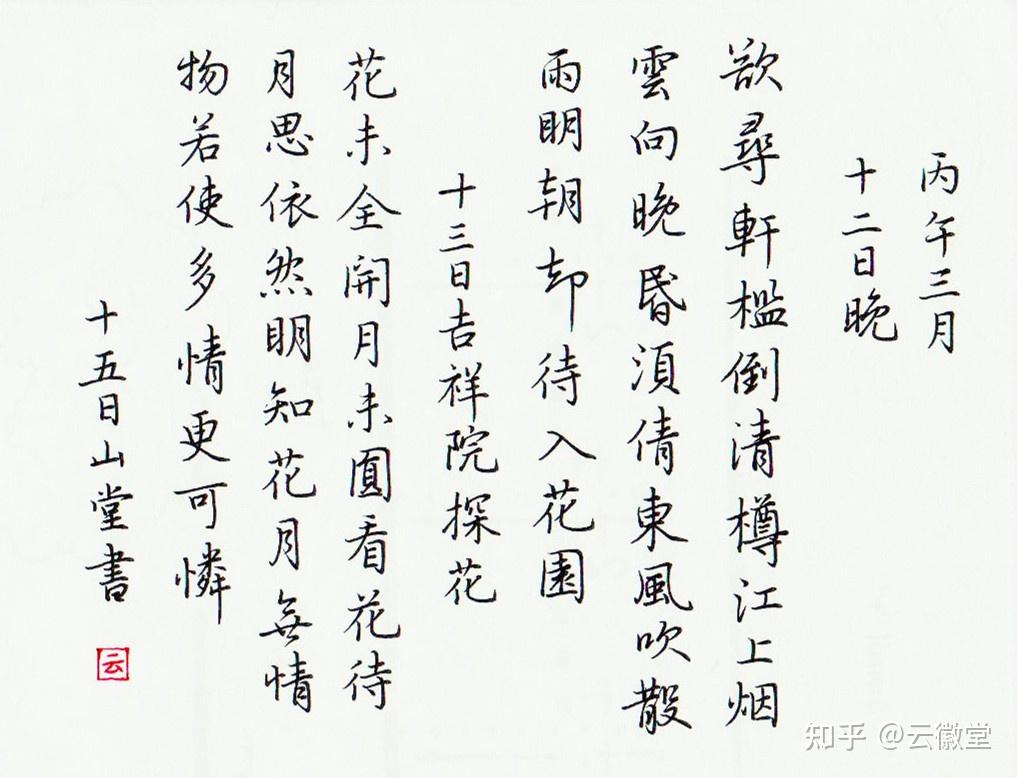 丙午三月
十二日晩
欲尋軒檻倒清樽江上烟
雲向晩昏湏倩東風吹散
雨明朝却待入花園
十三日吉祥院探花
花未全開月未圓看花待
月思依然明知花月無情
物若使多情更可憐
十五日山堂書
云
知乎 @云徽堂